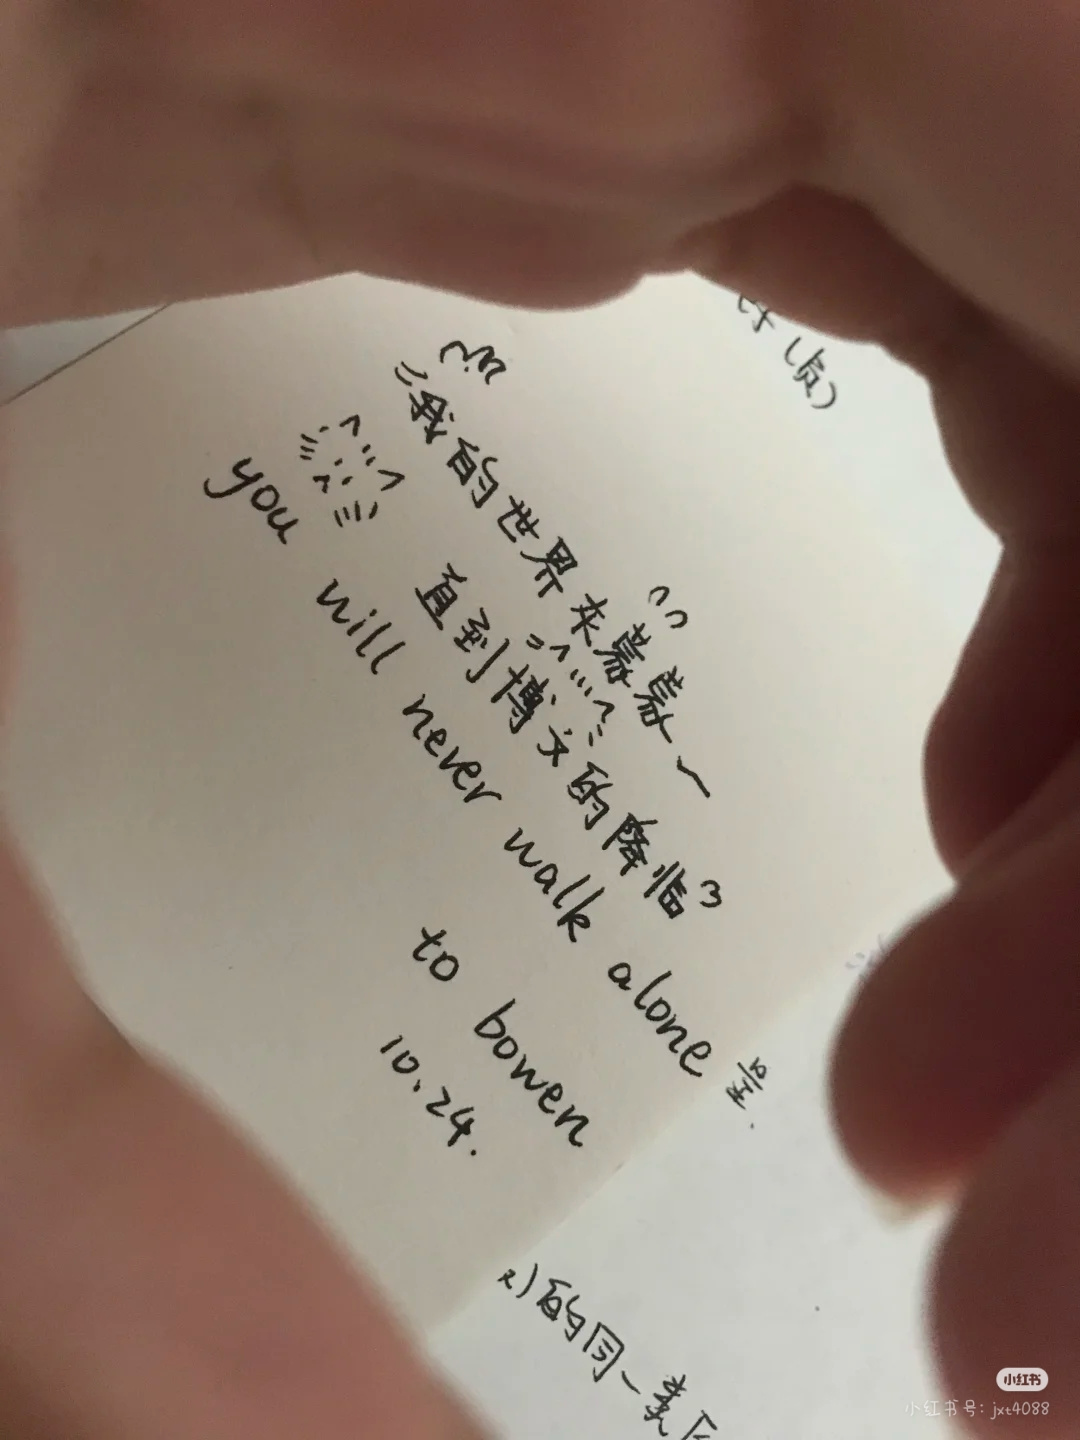 (员)
我的世界灰蒙蒙
直到博文的降临
you will never walk alone
to bowen
10.24.
的同一类
小红书
小红书号: jxt4088